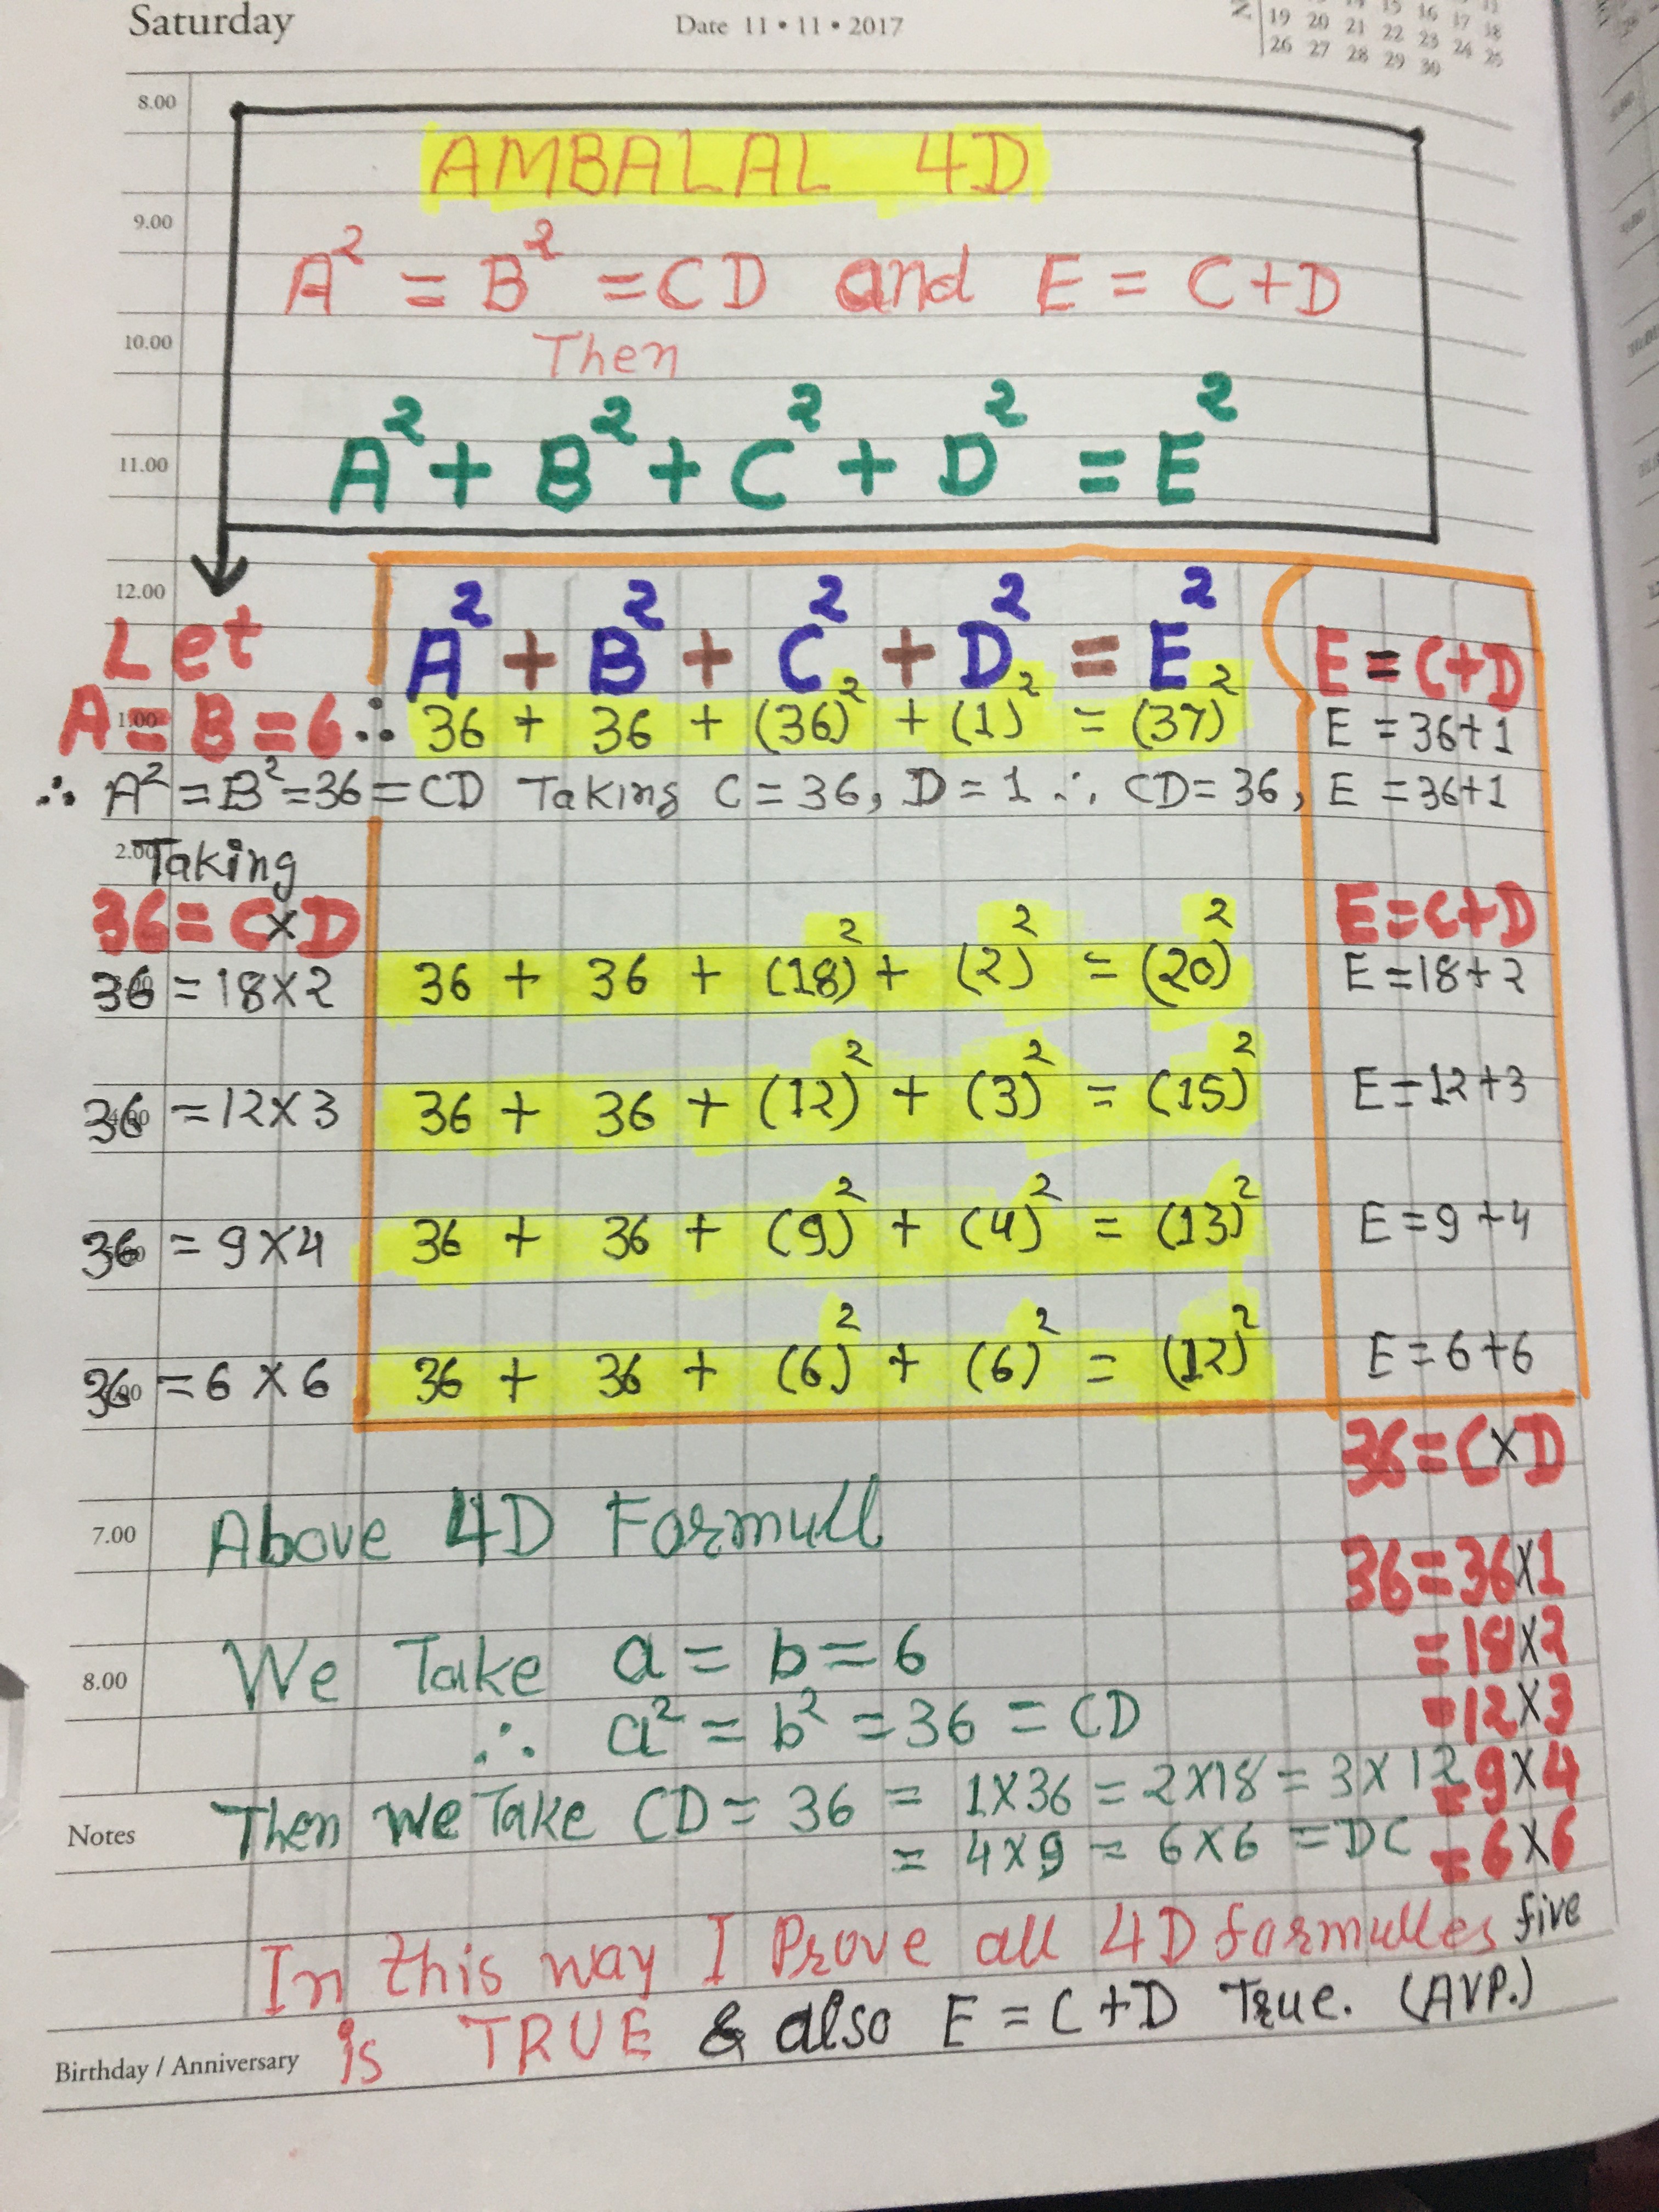 Saturday
Date 11 • 11 • 2017
15 16 17 18
19 20 21 22 23 24 25
26 27 28 29 30
8.00
AMBALAL 4D
9.00
A² = B² = CD and E = C+D
10.00
Then
11.00
A² + B² + C² + D² = E²
12.00
Let
A² + B² + C² + D² = E²
E = C+D
1.00
A = B = 6 ∴ 36 + 36 + (36)² + (1)² = (37)²
E = 36+1
∴ A² = B² = 36 = CD Taking C = 36, D = 1 ∴ CD = 36, E = 36+1
2.00
Taking
36 = C×D
E = C+D
36 = 18×2
36 + 36 + (18)² + (2)² = (20)²
E = 18+2
36 = 12×3
36 + 36 + (12)² + (3)² = (15)²
E = 12+3
36 = 9×4
36 + 36 + (9)² + (4)² = (13)²
E = 9+4
36 = 6×6
36 + 36 + (6)² + (6)² = (12)²
E = 6+6
36 = C×D
7.00
Above 4D Formull
36 = 36×1
= 18×2
= 12×3
= 9×4
= 6×6
8.00
We Take a = b = 6
∴ a² = b² = 36 = CD
Notes
Then We Take CD = 36 = 1×36 = 2×18 = 3×12
= 4×9 = 6×6 = DC
In this way I Prove all 4D formulles five
is TRUE & also E = C+D True. (AVP.)
Birthday / Anniversary